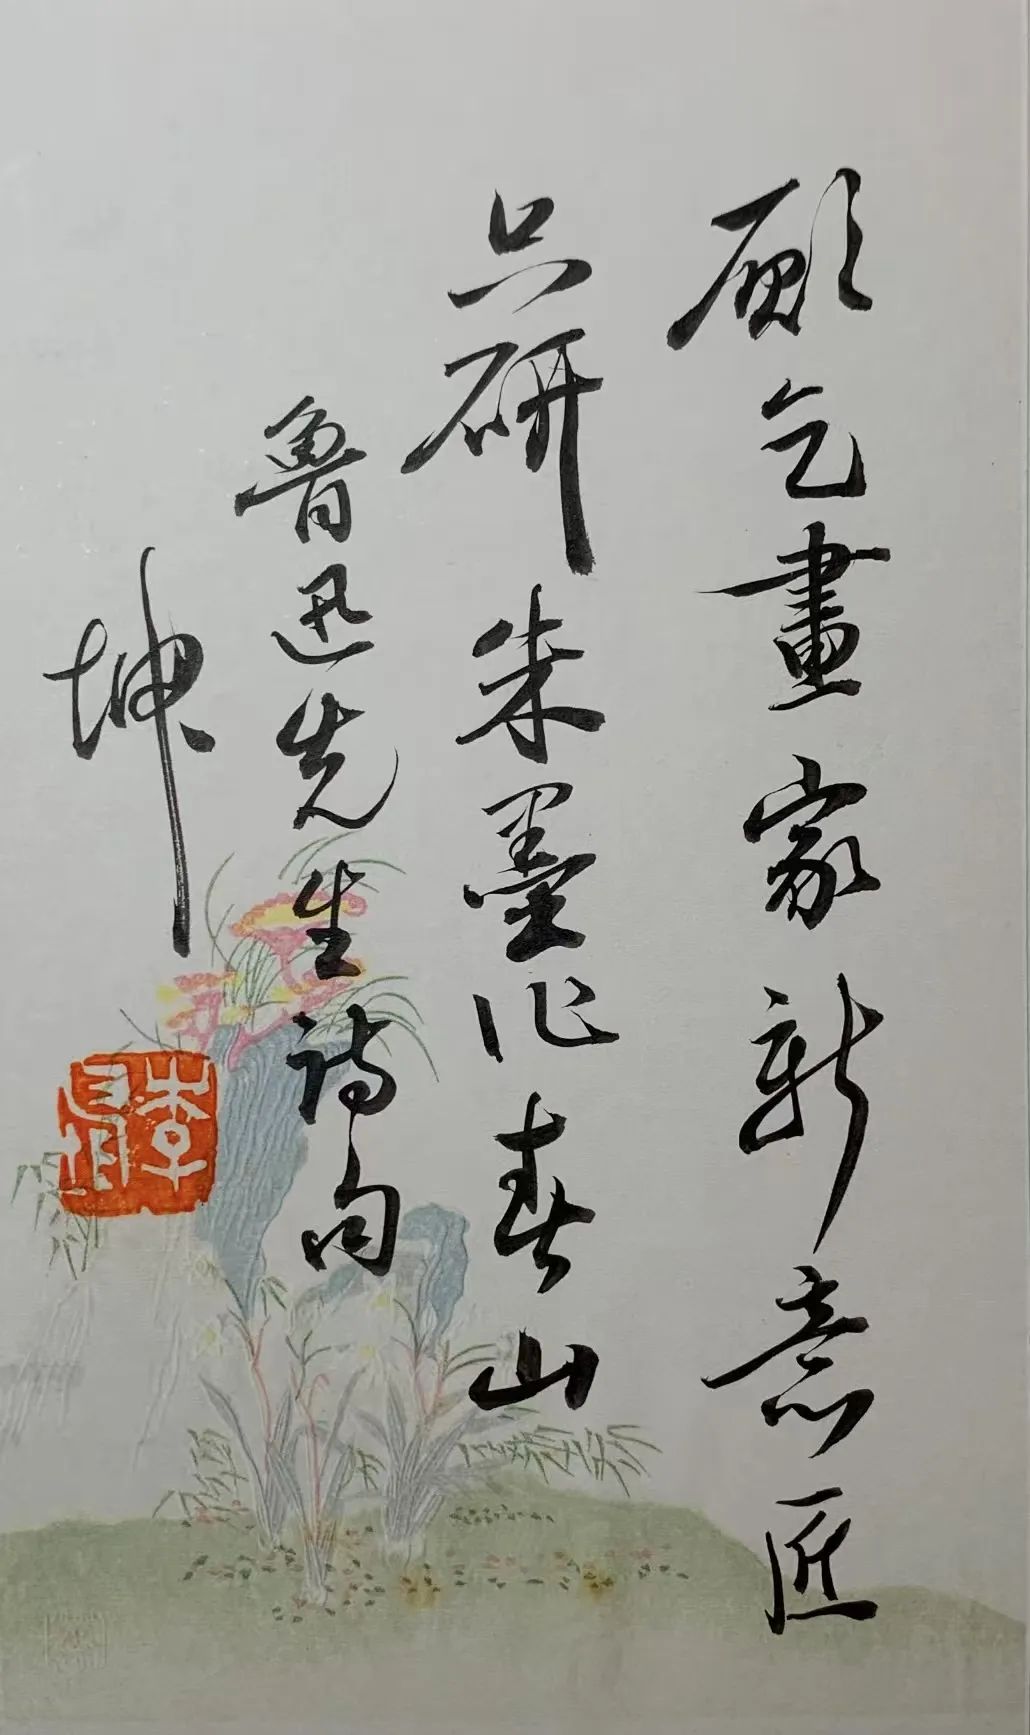 願乞畫家新意匠
只研朱墨作春山
魯迅先生诗句
坤